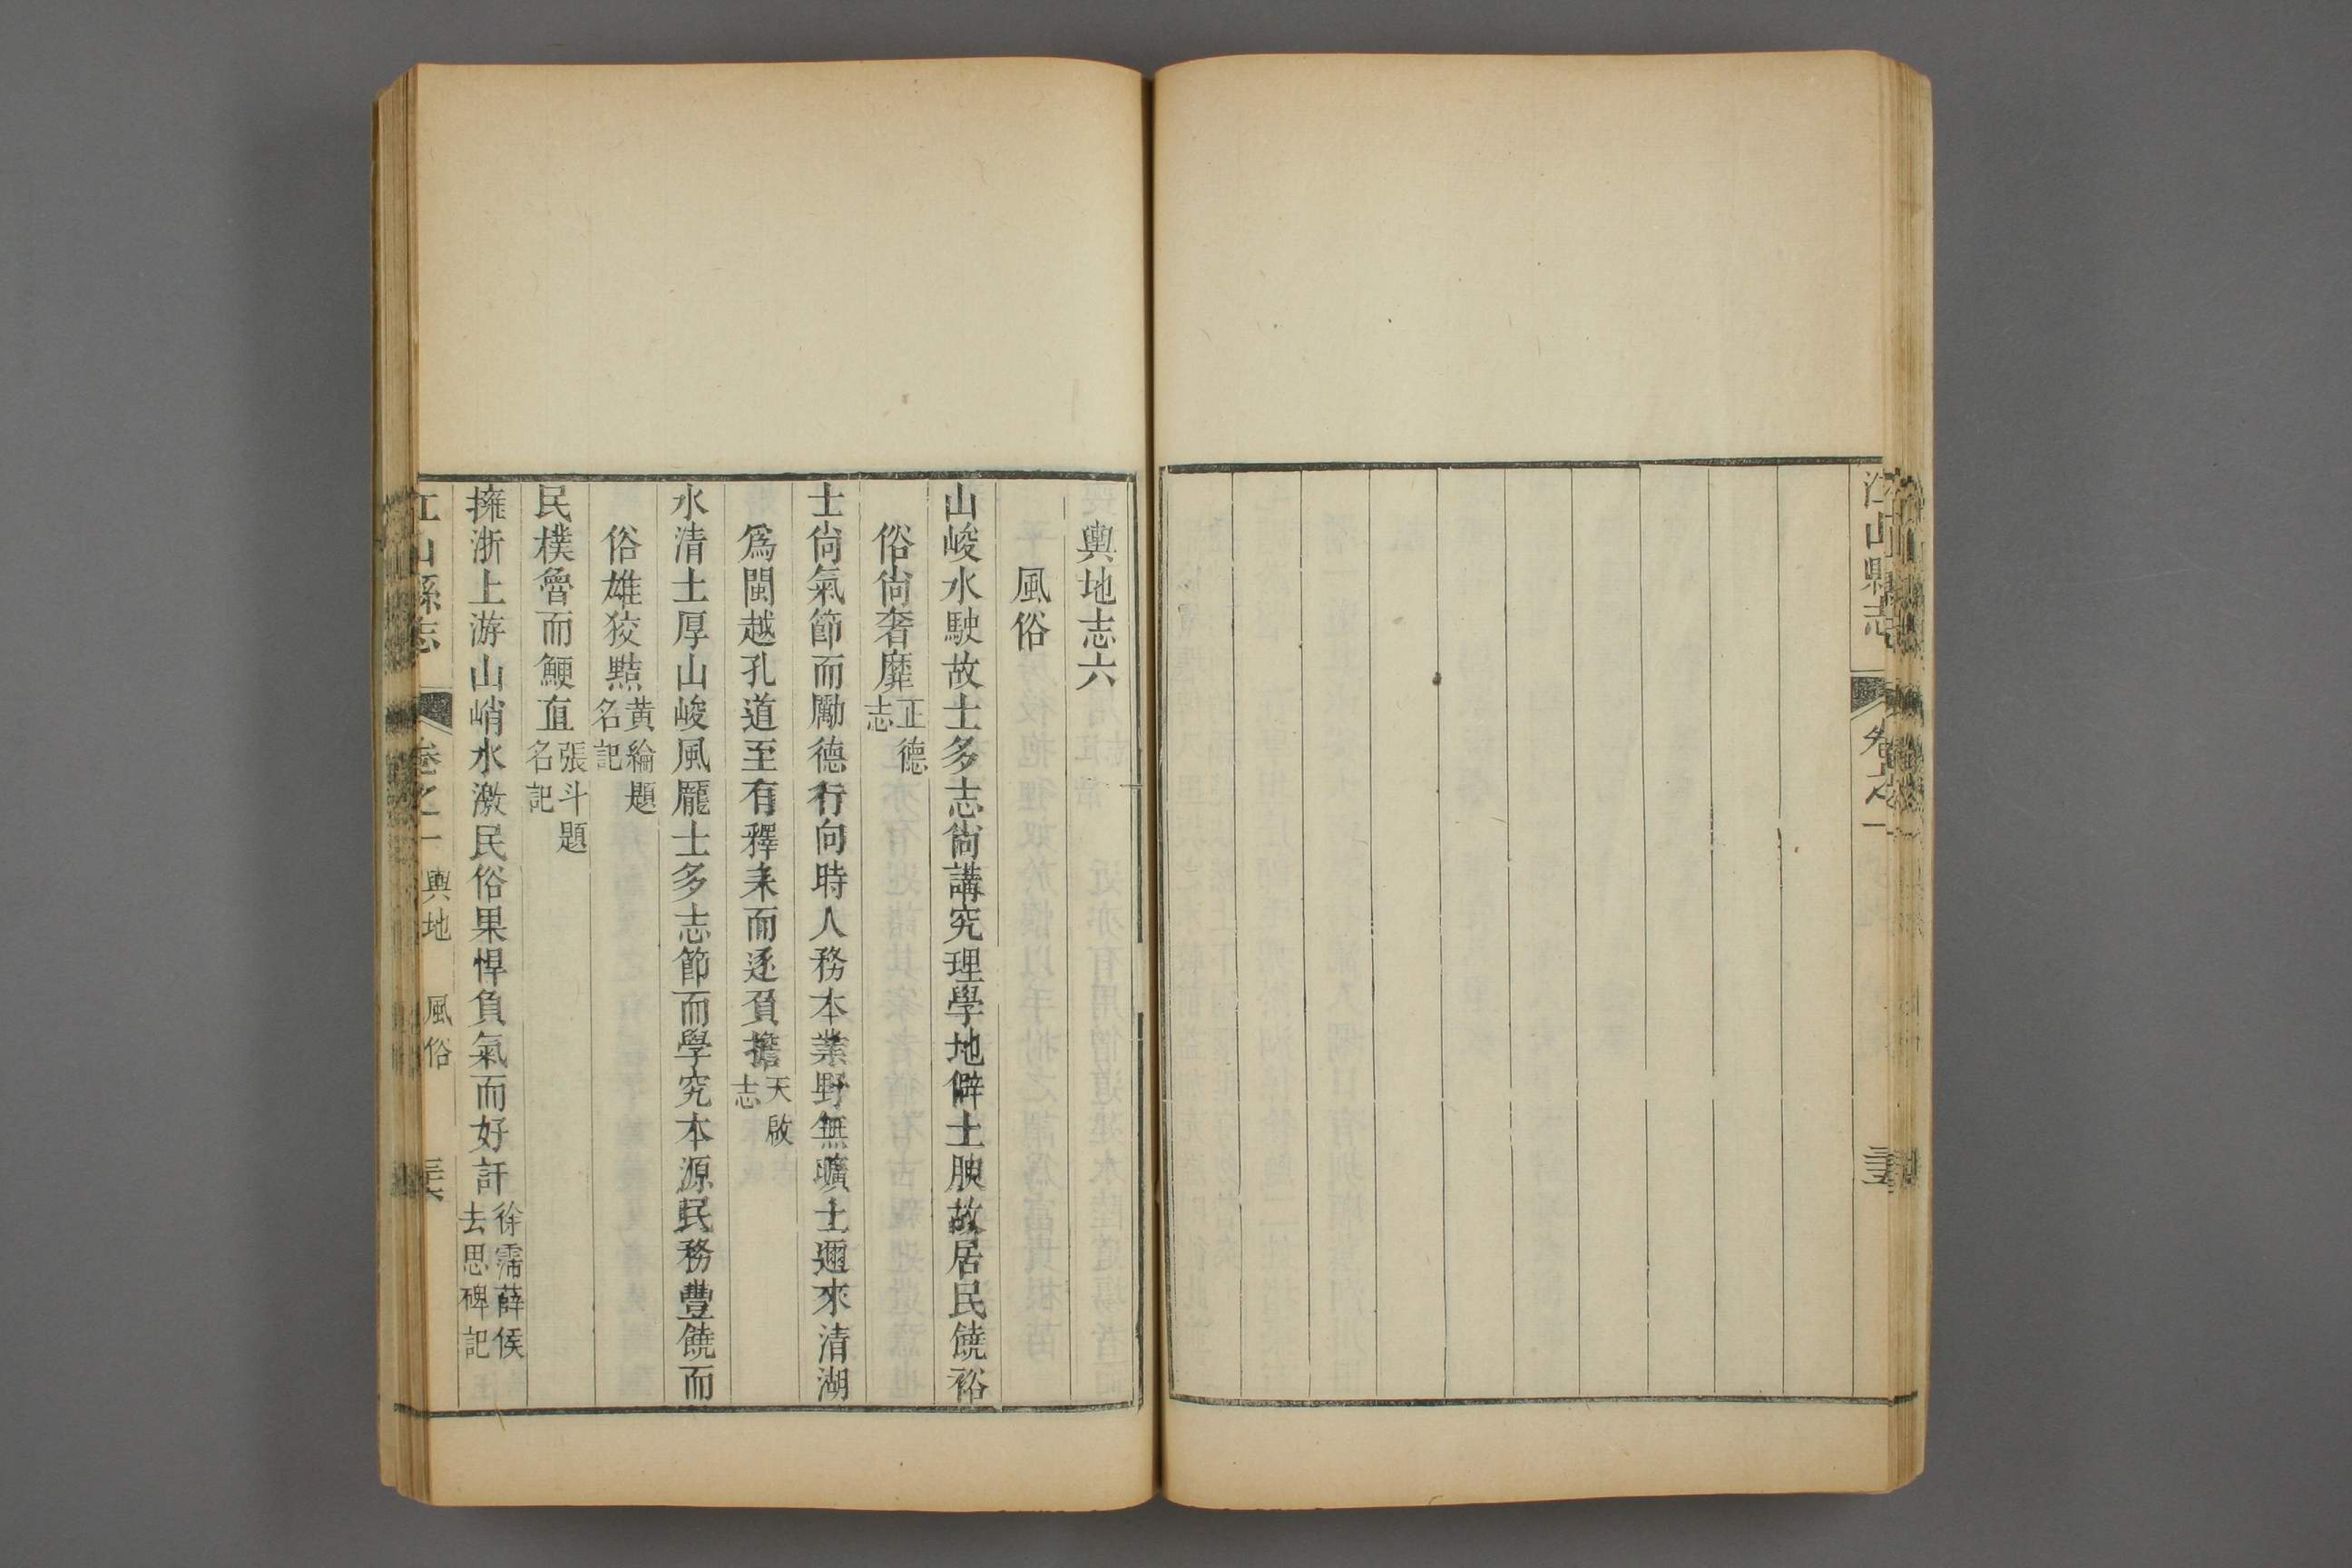 江山縣志
卷之一
三十五
輿地志六
風俗
山峻水駛故士多志尙講究理學地僻土腴故居民饒裕
俗尙奢靡正德
志
士尙氣節而勵德行向時人務本業野無曠土邇來清湖
爲閩越孔道至有釋耒而逐負擔天啟
志
水清土厚山峻風龎士多志節而學究本源民務豐饒而
俗雄狡黠黄綸題
名記
民樸魯而鯁直張斗題
名記
擁浙上游山峭水激民俗果悍負氣而好訐徐霈薛侯
去思碑記
江山縣志
卷之一
輿地
風俗
三十六